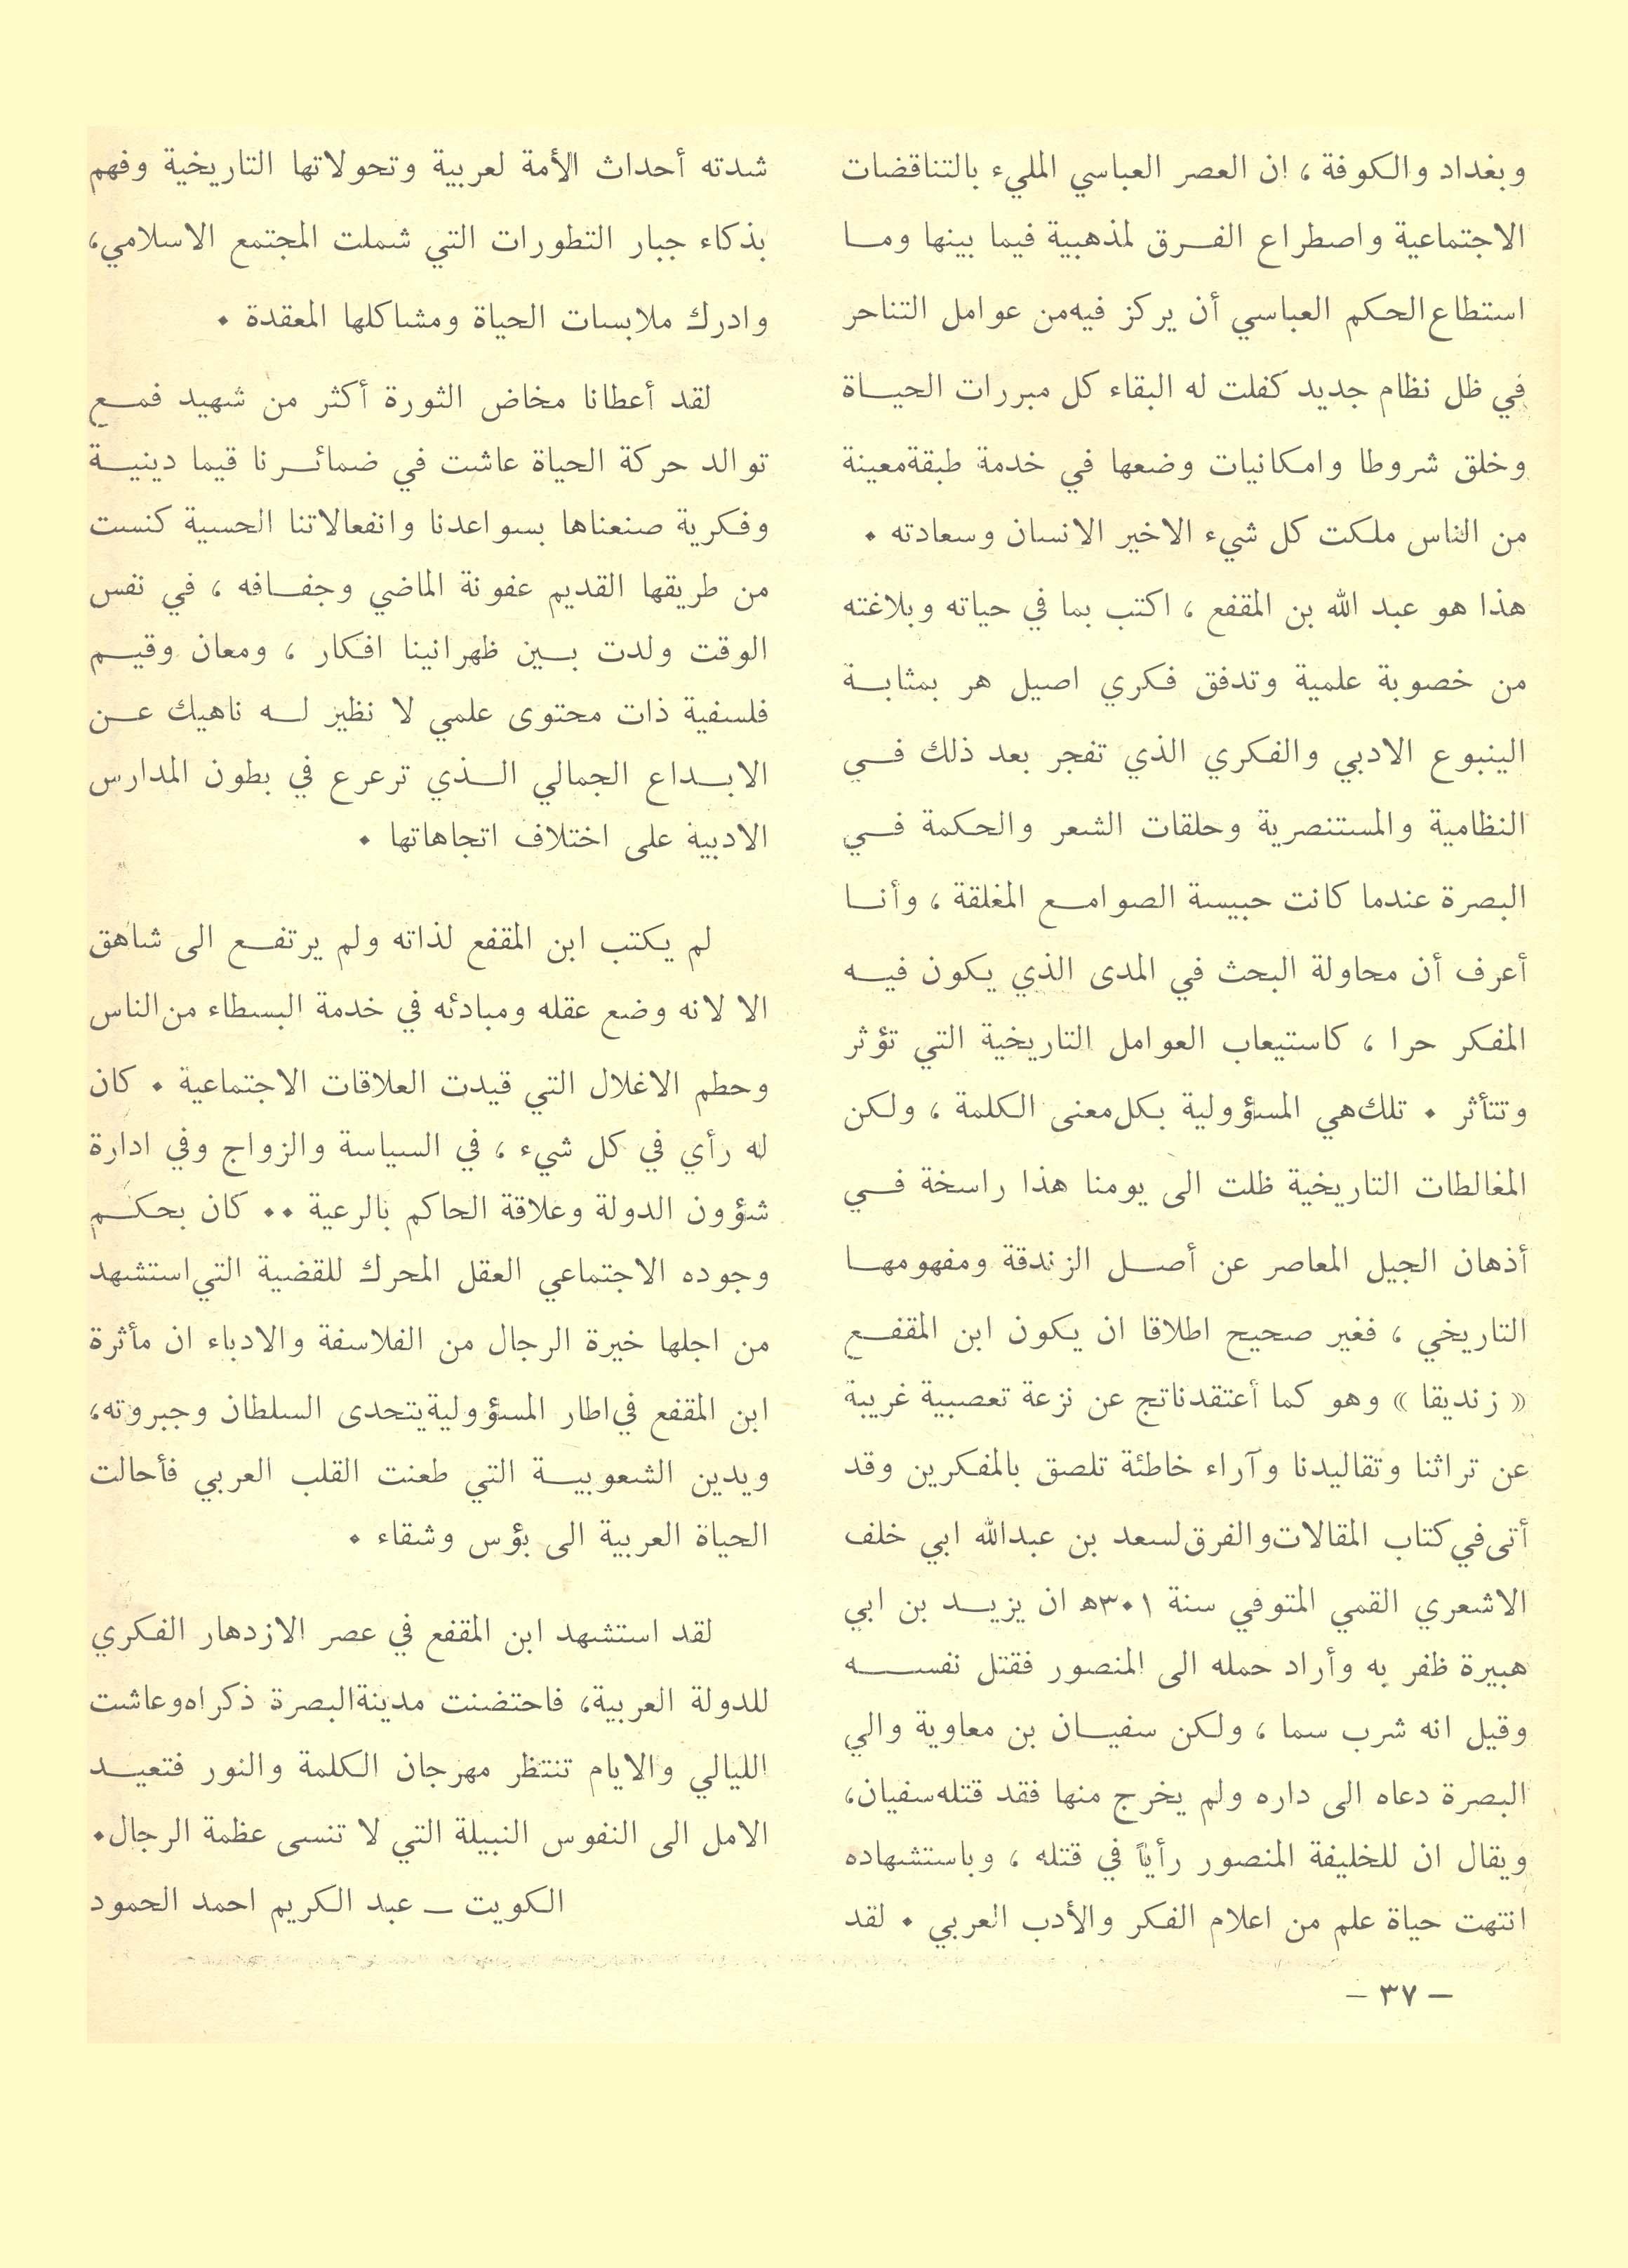 وبغداد والكوفة ، ان العصر العباسي المليء بالتناقضات
الاجتماعية واصطراع الفرق لمذهبية فيما بينها وما
استطاع الحكم العباسي أن يركز فيه من عوامل التناحر
في ظل نظام جديد كفلت له البقاء كل مبررات الحياة
وخلق شروطا وامكانيات وضعها في خدمة طبقة معينة
من الناس ملكت كل شيء الاخير الانسان وسعادته ٠
هذا هو عبد الله بن المقفع ، اكتب بما في حياته وبلاغته
من خصوبة علمية وتدفق فكري اصيل هر بمثابة
الينبوع الادبي والفكري الذي تفجر بعد ذلك في
النظامية والمستنصرية وحلقات الشعر والحكمة في
البصرة عندما كانت حبيسة الصوامع المغلقة ، وأنا
أعرف أن محاولة البحث في المدى الذي يكون فيه
المفكر حرا ، كاستيعاب العوامل التاريخية التي تؤثر
وتتأثر ٠ تلك هي المسؤولية بكل معنى الكلمة ، ولكن
المغالطات التاريخية ظلت الى يومنا هذا راسخة في
أذهان الجيل المعاصر عن أصل الزندقة ومفهومها
التاريخي ، فغير صحيح اطلاقا ان يكون ابن المقفع
« زنديقا » وهو كما أعتقد ناتج عن نزعة تعصبية غريبة
عن تراثنا وتقاليدنا وآراء خاطئة تلصق بالمفكرين وقد
أتى في كتاب المقالات والفرق لسعد بن عبدالله ابي خلف
الاشعري القمي المتوفي سنة ٣٠١هـ ان يزيد بن ابي
هبيرة ظفر به وأراد حمله الى المنصور فقتل نفسه
وقيل انه شرب سما ، ولكن سفيان بن معاوية والي
البصرة دعاه الى داره ولم يخرج منها فقد قتله سفيان،
ويقال ان للخليفة المنصور رأياً في قتله ، وباستشهاده
انتهت حياة علم من اعلام الفكر والأدب العربي ٠ لقد
شدته أحداث الأمة لعربية وتحولاتها التاريخية وفهم
بذكاء جبار التطورات التي شملت المجتمع الاسلامي،
وادرك ملابسات الحياة ومشاكلها المعقدة ٠
لقد أعطانا مخاض الثورة أكثر من شهيد فمع
توالد حركة الحياة عاشت في ضمائرنا قيما دينية
وفكرية صنعناها بسواعدنا وانفعالاتنا الحسية كنست
من طريقها القديم عفونة الماضي وجفافه ، في نفس
الوقت ولدت بين ظهرانينا افكار ، ومعان وقيم
فلسفية ذات محتوى علمي لا نظير له ناهيك عن
الابداع الجمالي الذي ترعرع في بطون المدارس
الادبية على اختلاف اتجاهاتها ٠
لم يكتب ابن المقفع لذاته ولم يرتفع الى شاهق
الا لانه وضع عقله ومبادئه في خدمة البسطاء من الناس
وحطم الاغلال التي قيدت العلاقات الاجتماعية ٠ كان
له رأي في كل شيء ، في السياسة والزواج وفي ادارة
شؤون الدولة وعلاقة الحاكم بالرعية ٠٠ كان بحكم
وجوده الاجتماعي العقل المحرك للقضية التي استشهد
من اجلها خيرة الرجال من الفلاسفة والادباء ان مأثرة
ابن المقفع في اطار المسؤولية يتحدى السلطان وجبروته،
ويدين الشعوبية التي طعنت القلب العربي فأحالت
الحياة العربية الى بؤس وشقاء ٠
لقد استشهد ابن المقفع في عصر الازدهار الفكري
للدولة العربية، فاحتضنت مدينة البصرة ذكراه وعاشت
الليالي والايام تنتظر مهرجان الكلمة والنور فتعيد
الامل الى النفوس النبيلة التي لا تنسى عظمة الرجال٠
الكويت ــ عبد الكريم احمد الحمود
– ٣٧ –